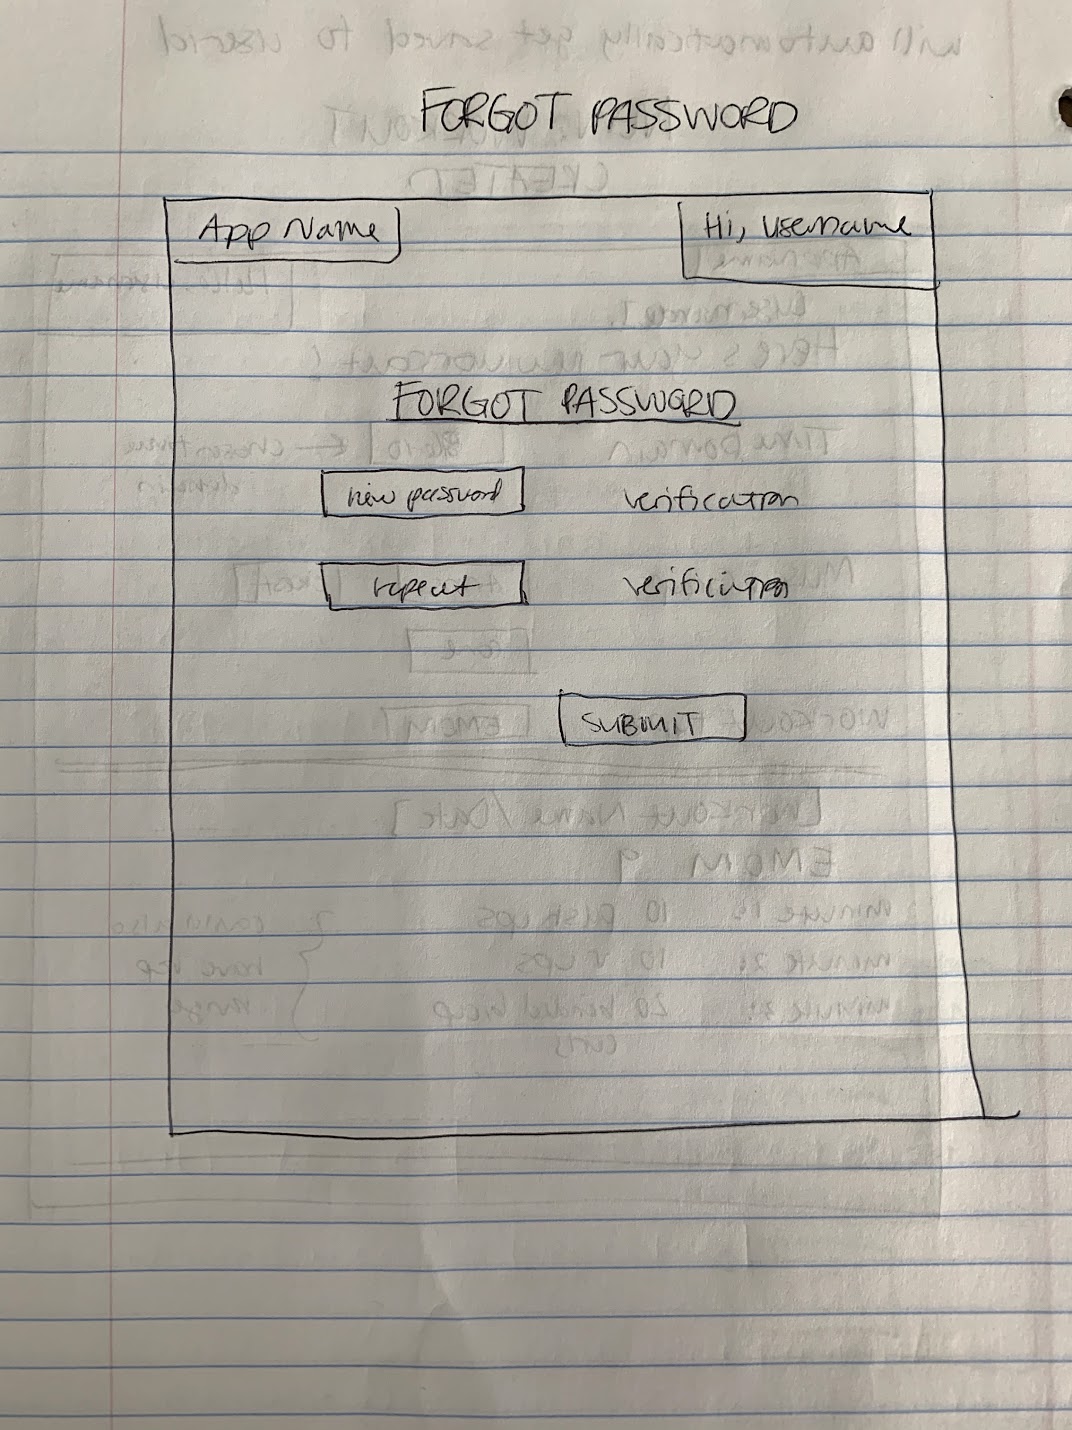 FORGOT PASSWORD
App Name
Hi, username
FORGOT PASSWORD
new password
verification
repeat
verification
SUBMIT